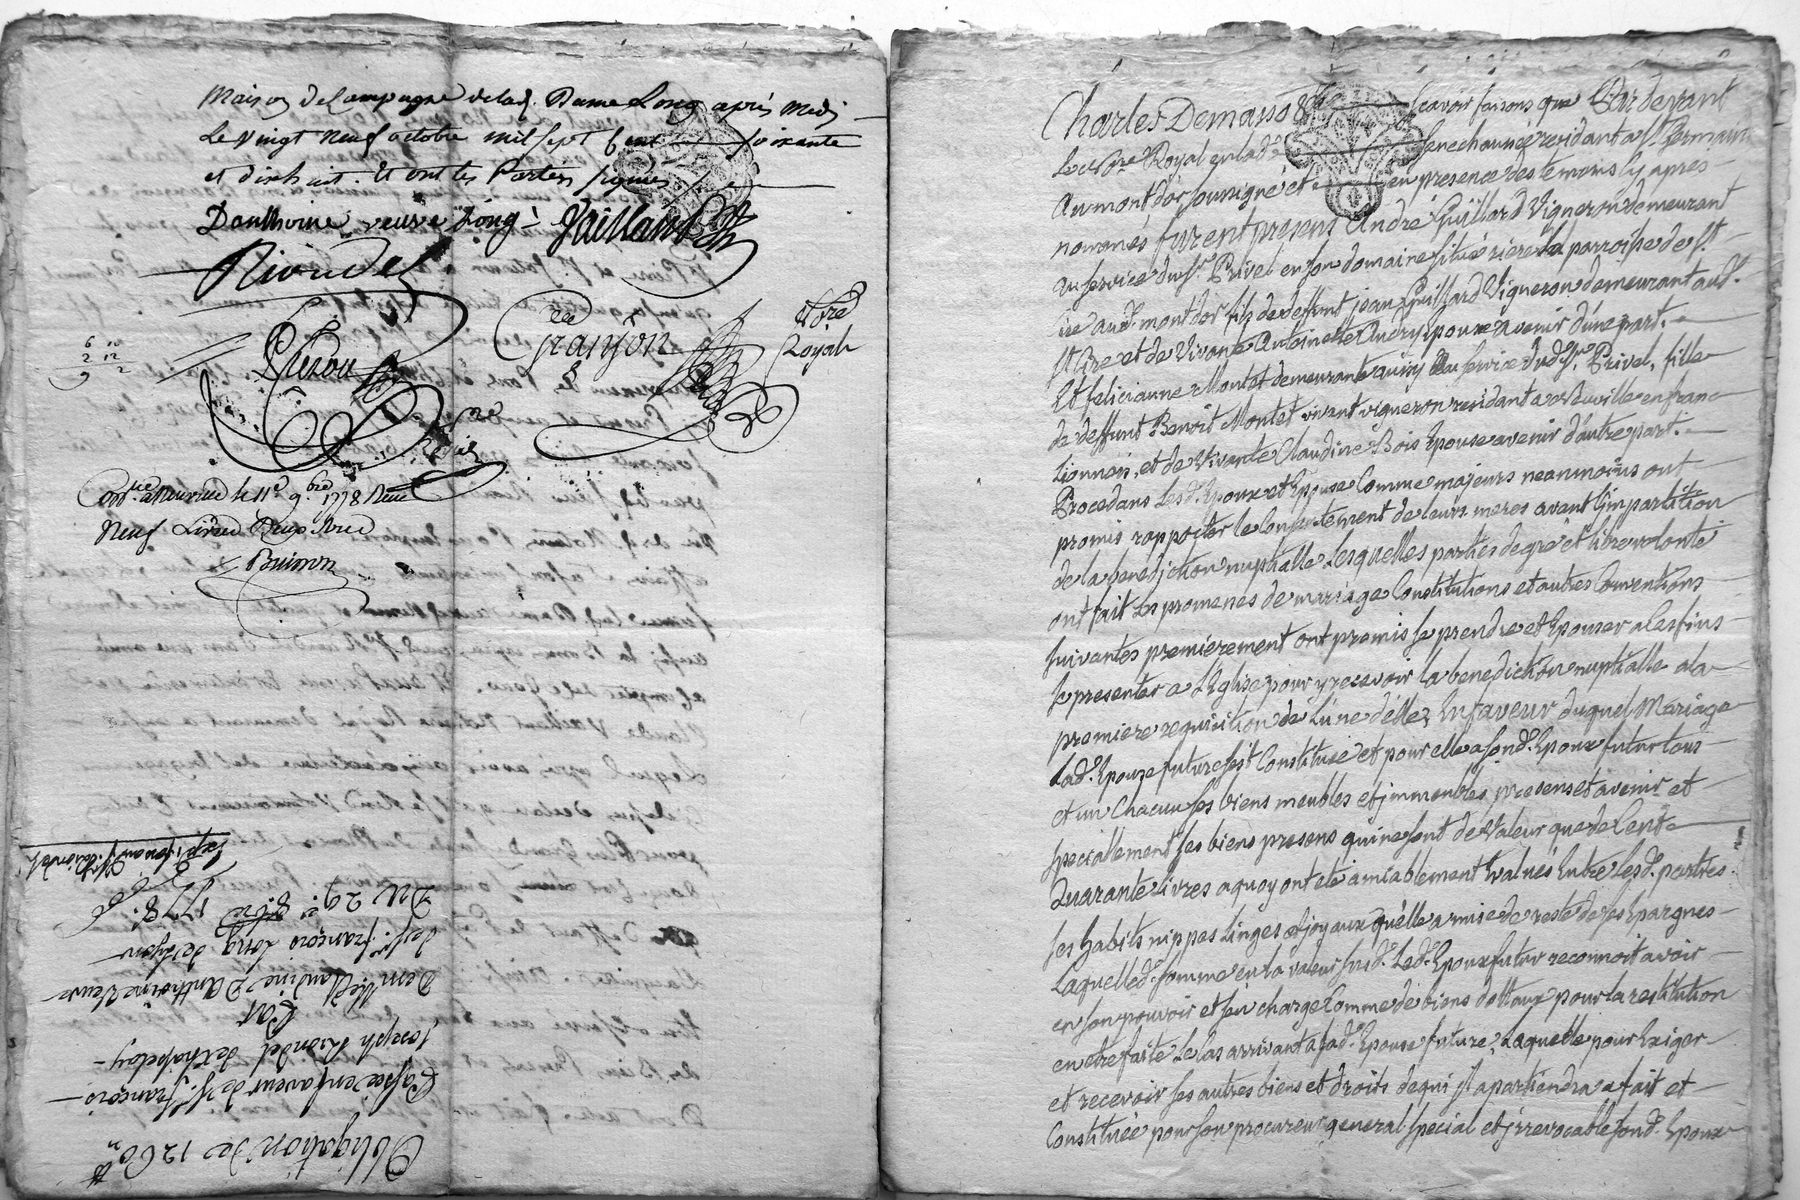 Maison de Campagne de lad. Dame Long après Midi
Le vingt neuf octobre mil sept Cent soixante
et dix huit. Et ont les Parties signés
Danthoine veuve Long Vaillant
Rioudel
Granjon
Nore
Royal
6 10
2 12
9 2
Contlé a Neuville le 11e 9bre 1778 Reçu
Neuf Livres Deux sous
Buisson
Obligation de 1260
Passée en faveur de Sr. françois
Joseph Rioudel de Chapelay
Par
Dem.lle Claudine Danthoine Veuve
de Sr. françois Long de Lyon
Du 29e. 8bre
1778.
Charles Demasso &c sçavoir faisons que Pardevant
Le Nre Royal en lad. Senechaussée residant a St. Germain
au mont d'or soussigné et en presence des temoins cy apres
nommés furent presens André Guillard Vigneron demeurant
au service du Sr. Privel en son domaine situé riere la parroisse de St
ire aud. mont d'or fils de deffunt jean Guillard Vigneron demeurant aud.
St Cire et de Vivante Antoinette Aucry Epoux avenir d'une part.
Et felicianne Montet demeurante aussy au service dud. Sr. Privel, fille
de deffunt Benoit Montet vivant vigneron residant a Neuville en franc
Lionnois, et de Vivante Claudine Bois Epouse avenir d'autre part.
Procedans Lesd. Epoux et Epouse Comme majeurs neanmoins ont
promis rapporter le Consentement de leurs meres avant L'impartition
de la benediction nuptialle Lesquelles parties de gré et libre volonté
ont fait Les promesses de mariage Constitutions et autres Conventions
suivantes premierement ont promis se prendre et Epouser a Ces fins
se presenter a L'Eglise pour y recevoir la benediction nuptialle a la
premiere requisition de L'une d'elles En faveur duquel Mariage
Lad. Epouse future s'est Constituée et pour elle a sond. Epoux futur tous
et un Chacun ses biens meubles et immeubles presens et avenir et
specialement ses biens presens qui ne sont de Valeur que de Cent
Quarante livres a quoy ont été amiablement Evalués Entre Lesd. parties
ses habits nippes linges et joyaux qu'elle a mis de reste de ses Epargnes
Laquelle d. somme en la valeur susd. Led. Epoux futur reconnoit avoir
en son pouvoir et s'en charge Comme de biens dottaux pour la restitution
en etre faite le Cas arrivant a lad. Epouse future, Laquelle pour Exiger
et recevoir ses autres biens et droits de qui Il apartiendra a fait et
Constituée pour son procureur general special et irrevocable sond. Epoux